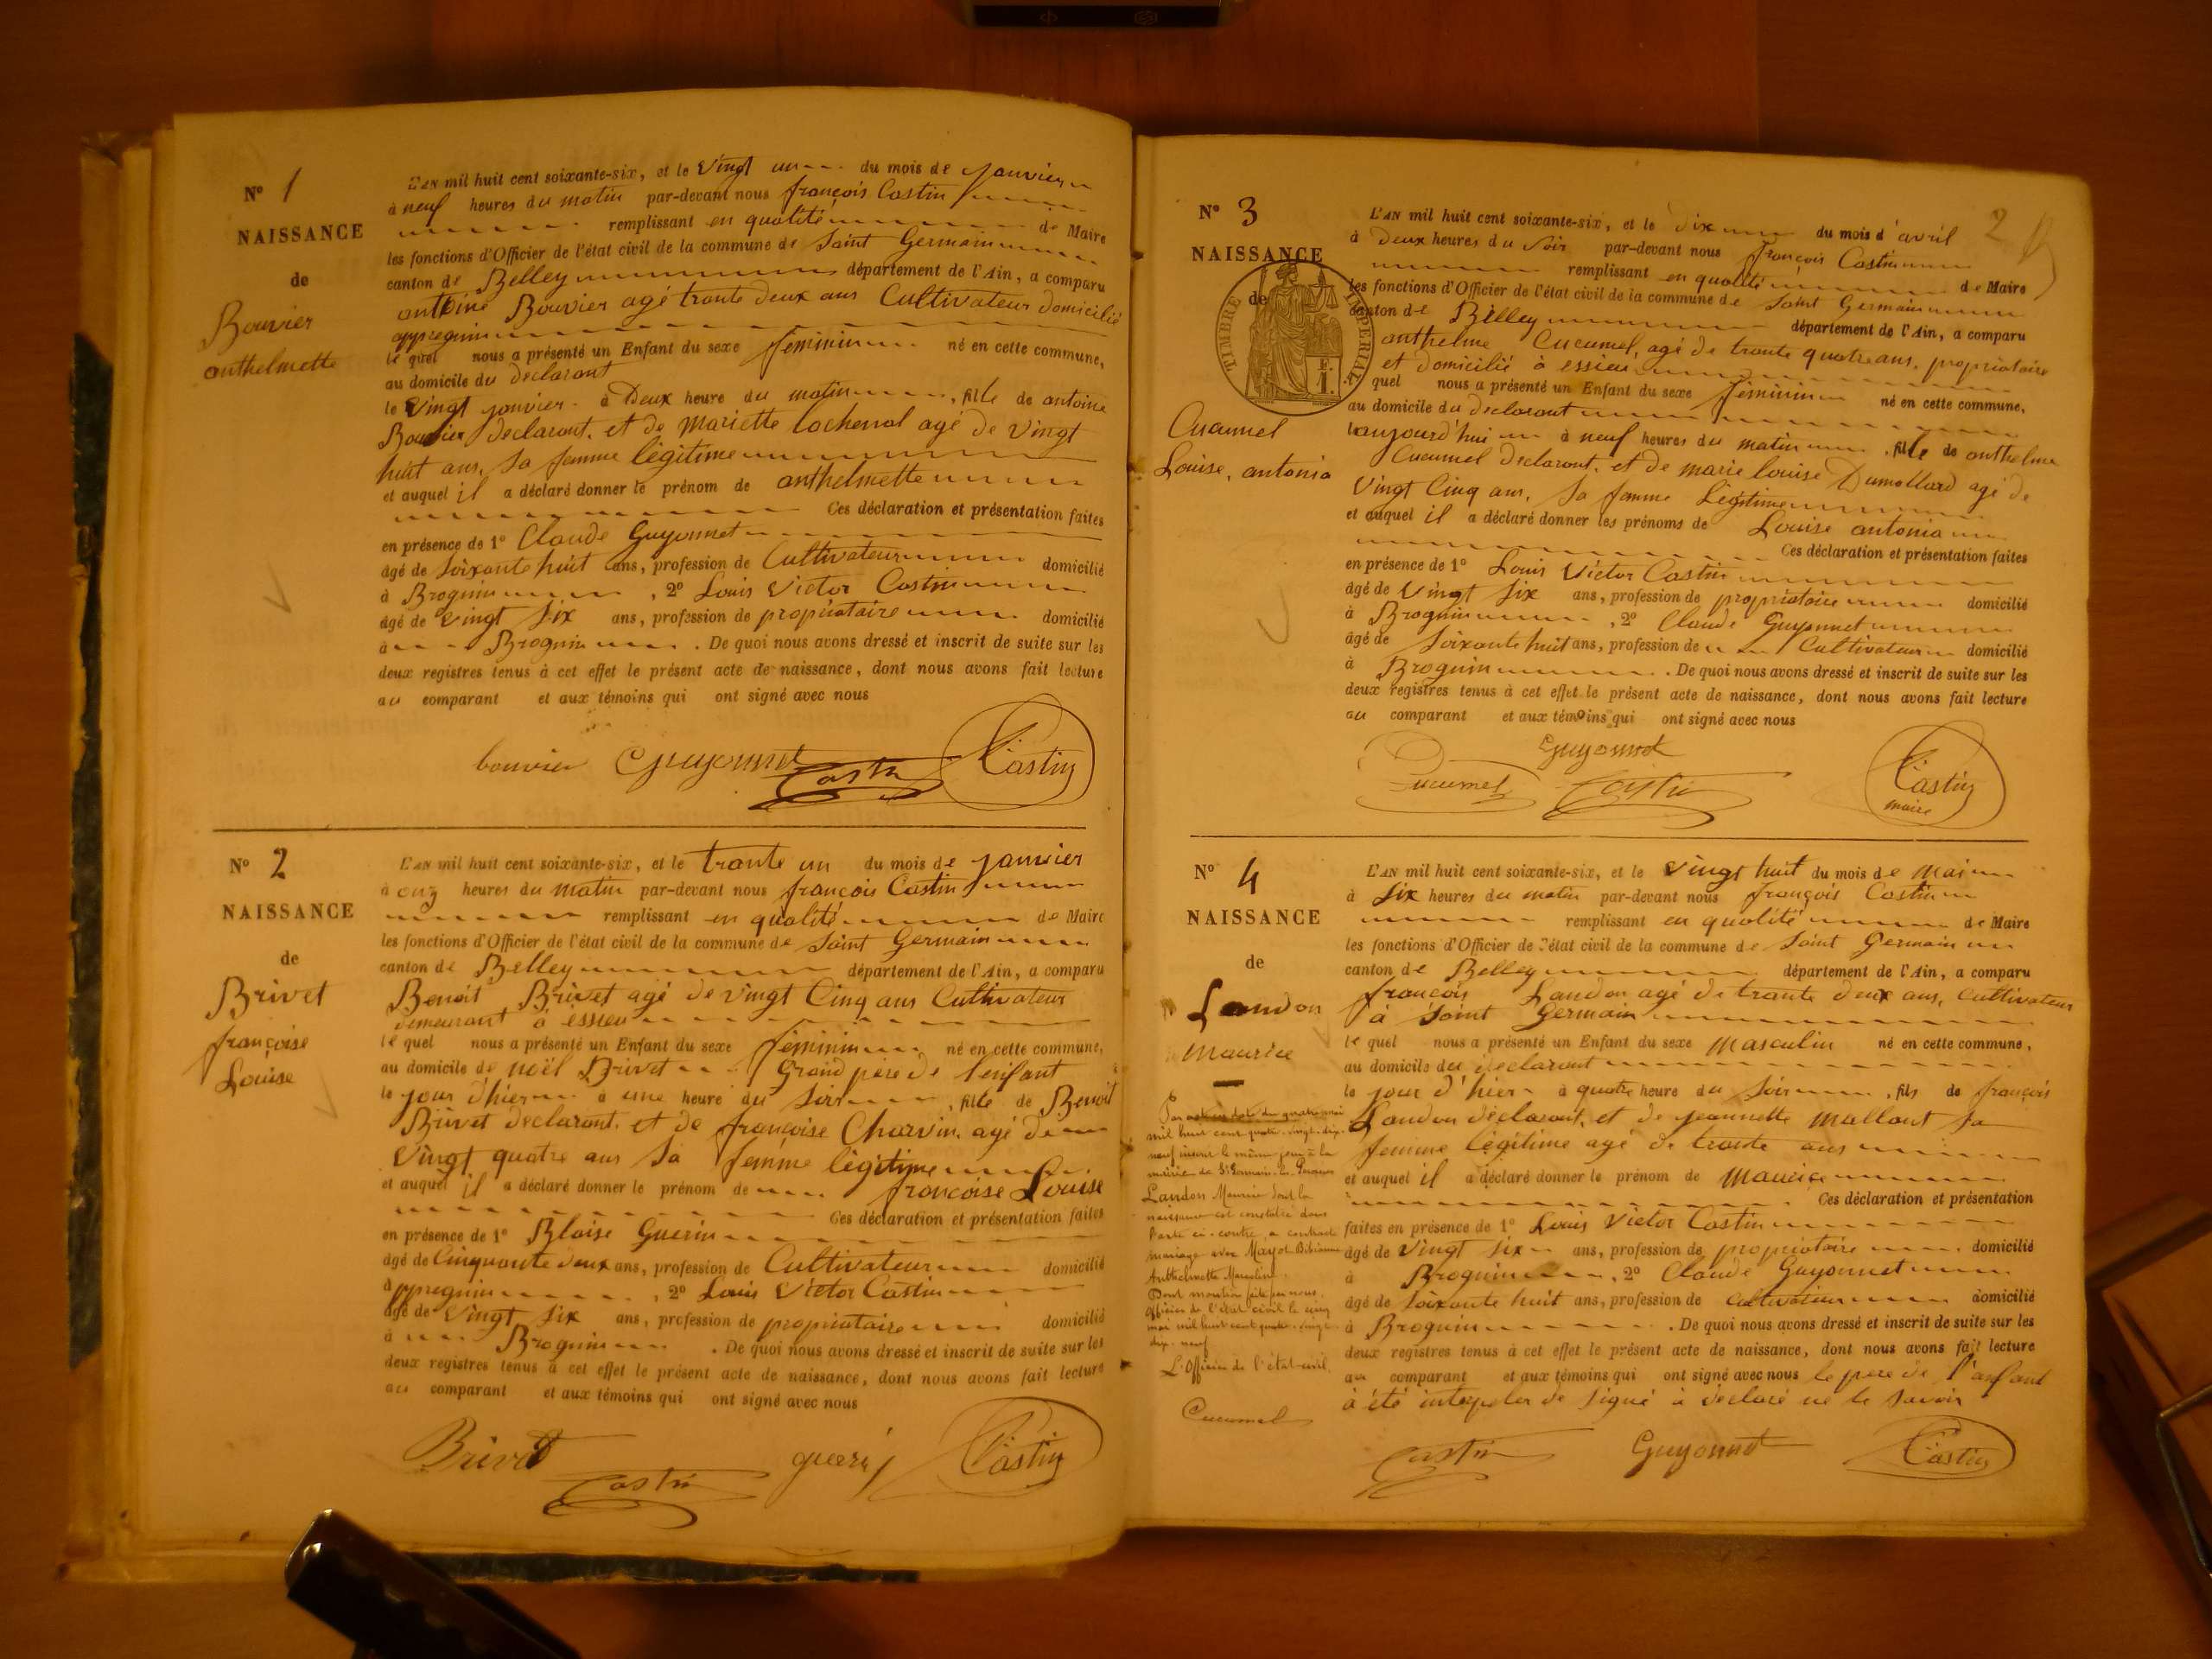 N° 1
NAISSANCE
de
Bouvier
anthelmette
L'AN mil huit cent soixante-six, et le Vingt un du mois de janvier
à neuf heures du matin par-devant nous françois Castin
remplissant en qualité de Maire
les fonctions d'Officier de l'état civil de la commune de Saint Germain
canton de Belley département de l'Ain, a comparu
antoine Bouvier agé trante deux ans Cultivateur domicilié
appregnin
le quel nous a présenté un Enfant du sexe féminin né en cette commune,
au domicile du declarant
le Vingt janvier à Deux heure du matin, fille de antoine
Bouvier declarant, et de Mariette Lochenal agé de Vingt
huit ans, Sa femme légitime
et auquel il a déclaré donner le prénom de anthelmette
Ces déclaration et présentation faites
en présence de 1° Claude Guyonnet
âgé de Soixante huit ans, profession de Cultivateur domicilié
à Brognin, 2° Louis Victor Castin
âgé de Vingt Six ans, profession de propriataire domicilié
à Brognin. De quoi nous avons dressé et inscrit de suite sur les
deux registres tenus à cet effet le présent acte de naissance, dont nous avons fait lecture
au comparant et aux témoins qui ont signé avec nous
bouvier Guyonnet Castin Castin
N° 2
NAISSANCE
de
Brivet
françoise
Louise
L'AN mil huit cent soixante-six, et le trante un du mois de janvier
à onz heures du matin par-devant nous françois Castin
remplissant en qualité de Maire
les fonctions d'Officier de l'état civil de la commune de Saint Germain
canton de Belley département de l'Ain, a comparu
Benoit Brivet agé de vingt Cinq ans Cultivateur
demeurant à essieu
le quel nous a présenté un Enfant du sexe féminin né en cette commune,
au domicile de noël Brivet Grand père de l'enfant
le jour d'hier à une heure du Soir, fille de Benoit
Brivet declarant, et de françoise Charvin, agé de
Vingt quatre ans Sa femme légitime
et auquel il a déclaré donner le prénom de françoise Louise
Ces déclaration et présentation faites
en présence de 1° Blaise Guerin
âgé de Cinquante deux ans, profession de Cultivateur domicilié
appregnin, 2° Louis Victor Castin
âgé de Vingt Six ans, profession de propriataire domicilié
à Brognin. De quoi nous avons dressé et inscrit de suite sur les
deux registres tenus à cet effet le présent acte de naissance, dont nous avons fait lecture
au comparant et aux témoins qui ont signé avec nous
Brivet Castin guerin Castin
2
N° 3
NAISSANCE
de
TIMBRE IMPERIAL
E.
1.
Cucumel
Louise, antonia
L'AN mil huit cent soixante-six, et le Dix du mois d'avril
à Deux heures du Soir par-devant nous françois Castin
remplissant en qualité de Maire
les fonctions d'Officier de l'état civil de la commune de Saint Germain
canton de Belley département de l'Ain, a comparu
anthelme Cucumel, agé de trante quatre ans, propriataire
et domicilié à essieu
quel nous a présenté un Enfant du sexe féminin né en cette commune,
au domicile du declarant
aujourd'hui à neuf heures du matin, fille de anthelme
Cucumel declarant, et de marie Louise Dumollard agé de
Vingt Cinq ans, Sa femme Légitime
et auquel il a déclaré donner les prénoms de Louise antonia
Ces déclaration et présentation faites
en présence de 1° Louis Victor Castin
âgé de Vingt Six ans, profession de propriataire domicilié
à Brognin, 2° Claude Guyonnet
âgé de Soixante huit ans, profession de Cultivateur domicilié
à Brognin. De quoi nous avons dressé et inscrit de suite sur les
deux registres tenus à cet effet le présent acte de naissance, dont nous avons fait lecture
au comparant et aux témoins qui ont signé avec nous
Guyonnet
Cucumel Castin Castin
maire
N° 4
NAISSANCE
de
Landon
Maurice
Par acte en date du quatre mai
mil huit cent quatre-vingt-dix-
neuf inscrit le même jour à la
mairie de St Germain-les-Paroisses
Landon Maurice dont la
naissance est constatée dans
l'acte ci-contre, a contracté
mariage avec Mayot Bibianne
Anthelmette Marceline
Dont mention faite par nous,
Officier de l'état-civil le cinq
mai mil huit cent quatre-vingt-
dix-neuf
L'Officier de l'état-civil.
Cucumel
L'AN mil huit cent soixante-six, et le Vingt huit du mois de Mai
à Six heures du matin par-devant nous françois Castin
remplissant en qualité de Maire
les fonctions d'Officier de l'état civil de la commune de Saint Germain
canton de Belley département de l'Ain, a comparu
françois Landon agé de trante deux ans, Cultivateur
à Saint Germain
le quel nous a présenté un Enfant du sexe Masculin né en cette commune,
au domicile du declarant
le jour d'hier à quatre heure du Soir, fils de françois
Landon declarant, et de jeannette Mallant Sa
femme légitime agé de trante ans
et auquel il a déclaré donner le prénom de Maurice
Ces déclaration et présentation
faites en présence de 1° Louis Victor Castin
âgé de Vingt Six ans, profession de propriataire domicilié
à Brognin, 2° Claude Guyonnet
âgé de Soixante huit ans, profession de Cultivateur domicilié
à Brognin. De quoi nous avons dressé et inscrit de suite sur les
deux registres tenus à cet effet le présent acte de naissance, dont nous avons fait lecture
au comparant et aux témoins qui ont signé avec nous le père de l'anfant
à été interpeler de Signé à declaré ne le Savoir
Castin Guyonnet Castin